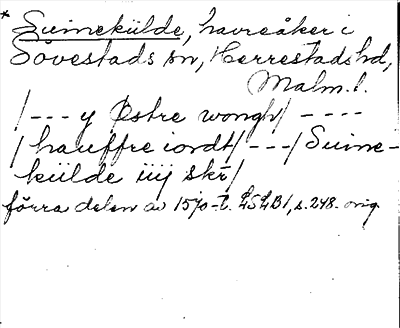 * Suinekülde, havreåker i
Sövestads sn, Herrestads hd,
Malm. l.
/--- y Østre wongh/ ----
/hauffre iordt/---/Suine-
külde iiij skr̄/
förra delen av 1570-t. LSLB1, s. 248. orig